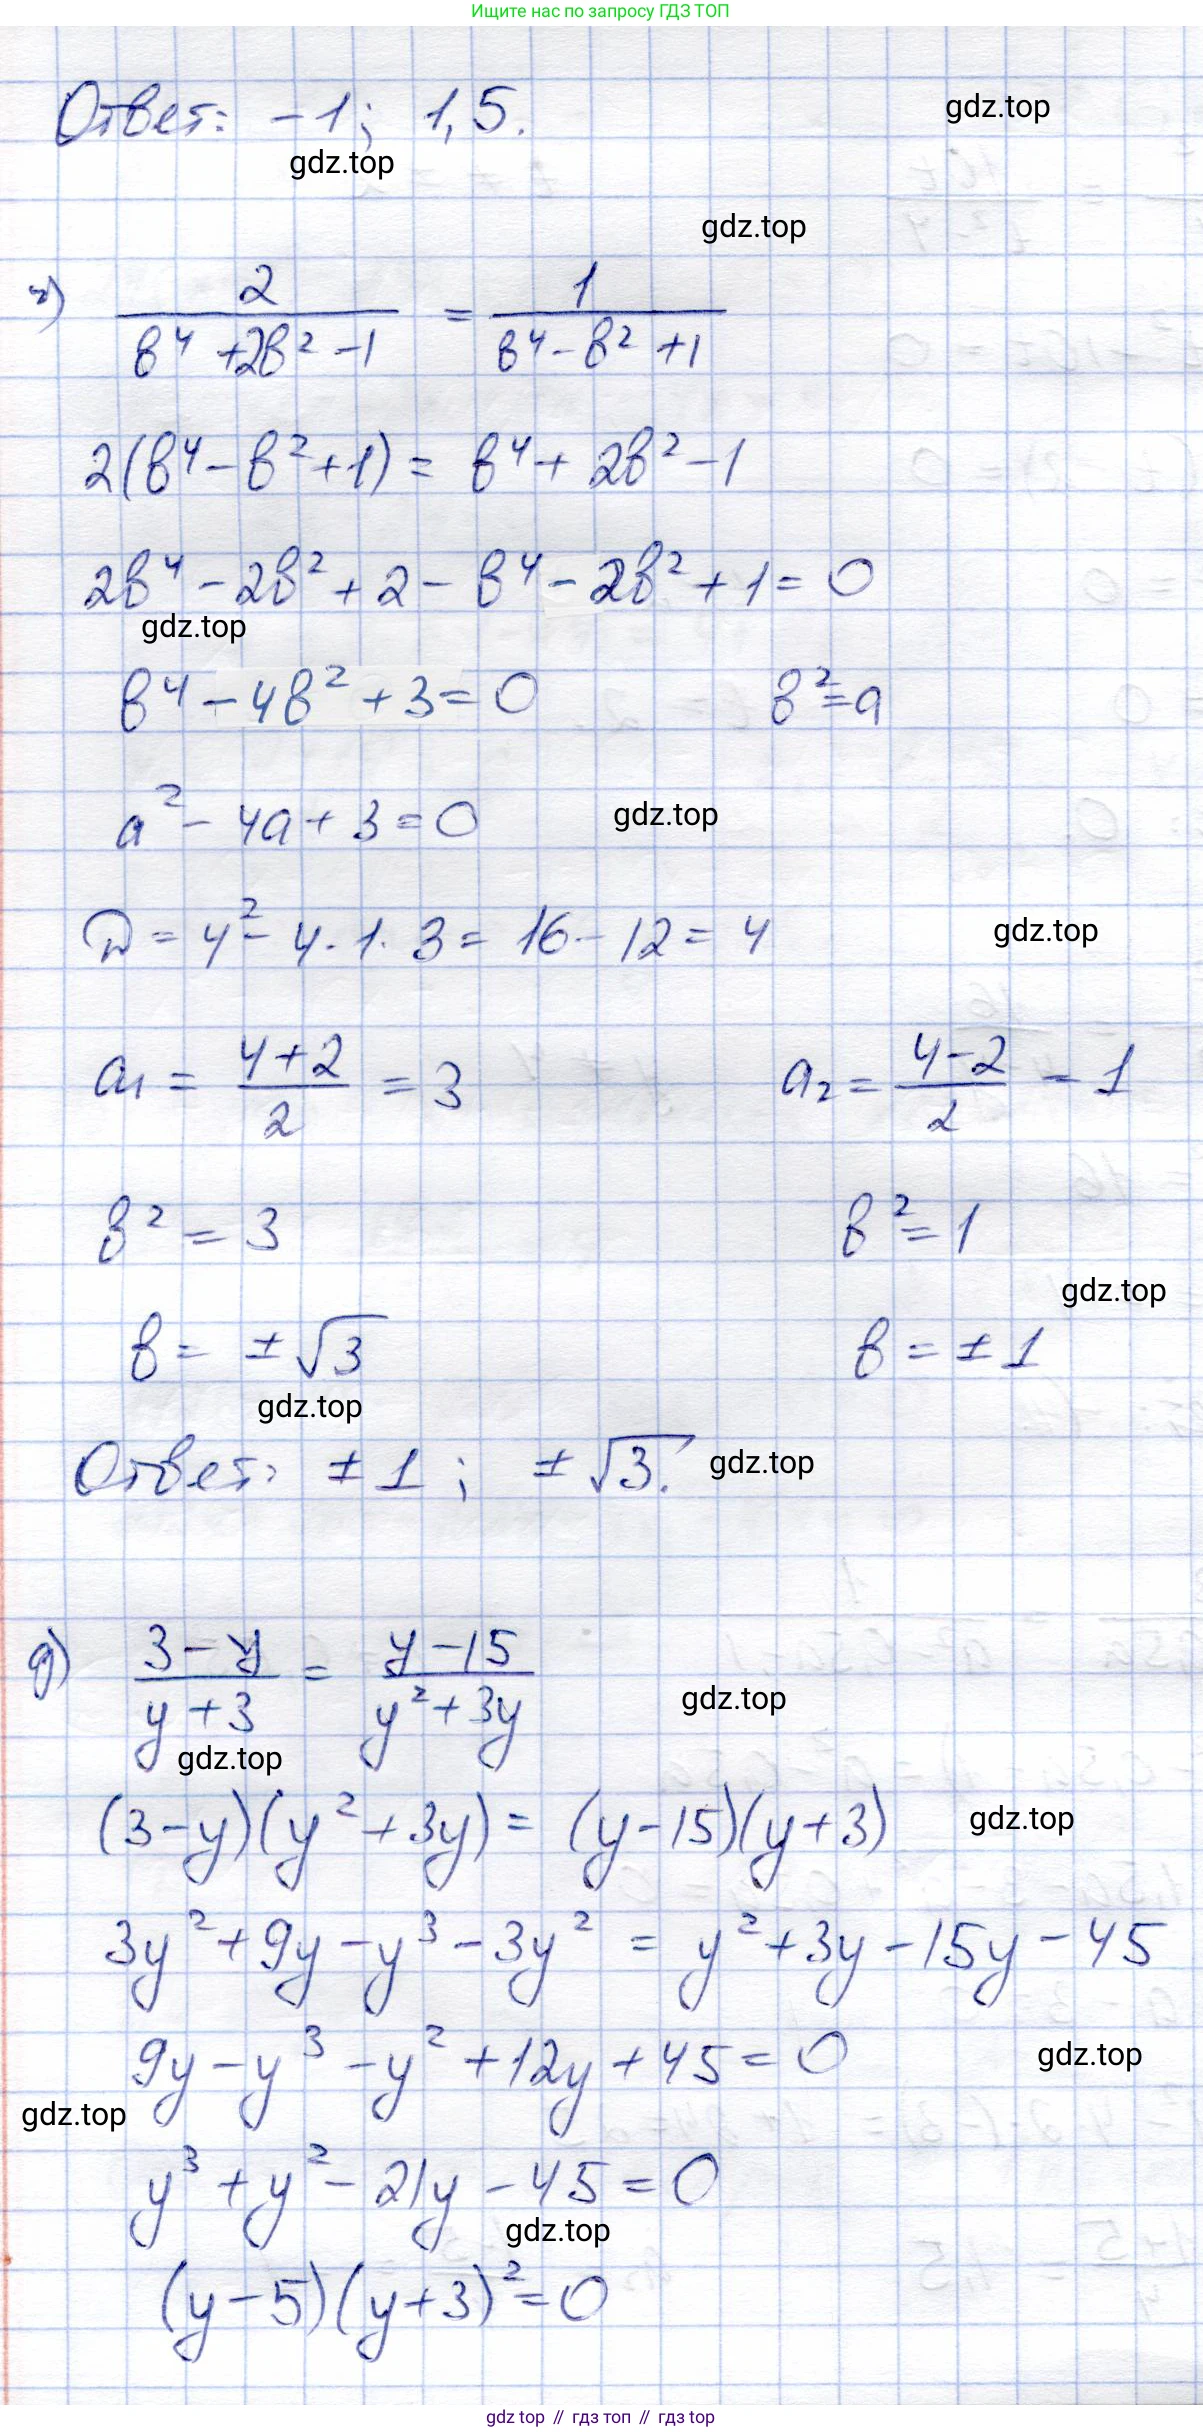 Ищите нас по запросу ГДЗ ТОП
Ответ: -1; 1,5.
gdz.top
gdz.top
gdz.top
г) 2/(в⁴+2в²-1) = 1/(в⁴-в²+1)
2(в⁴-в²+1) = в⁴+2в²-1
2в⁴-2в²+2-в⁴-2в²+1=0
gdz.top
в⁴-4в²+3=0 в²=a
a²-4a+3=0 gdz.top
D=4²-4·1·3=16-12=4 gdz.top
a₁ = (4+2)/2 = 3 a₂ = (4-2)/2 - 1
в² = 3 в² = 1
gdz.top
в = ±√3 в = ±1
gdz.top
Ответ: ±1; ±√3. gdz.top
д) (3-y)/(y+3) = (y-15)/(y²+3y) gdz.top
gdz.top
(3-y)(y²+3y) = (y-15)(y+3) gdz.top
3y²+9y-y³-3y² = y²+3y-15y-45
9y-y³-y²+12y+45=0 gdz.top
gdz.top
y³+y²-21y-45=0
gdz.top
(y-5)(y+3)²=0
gdz top // гдз топ // гдз top